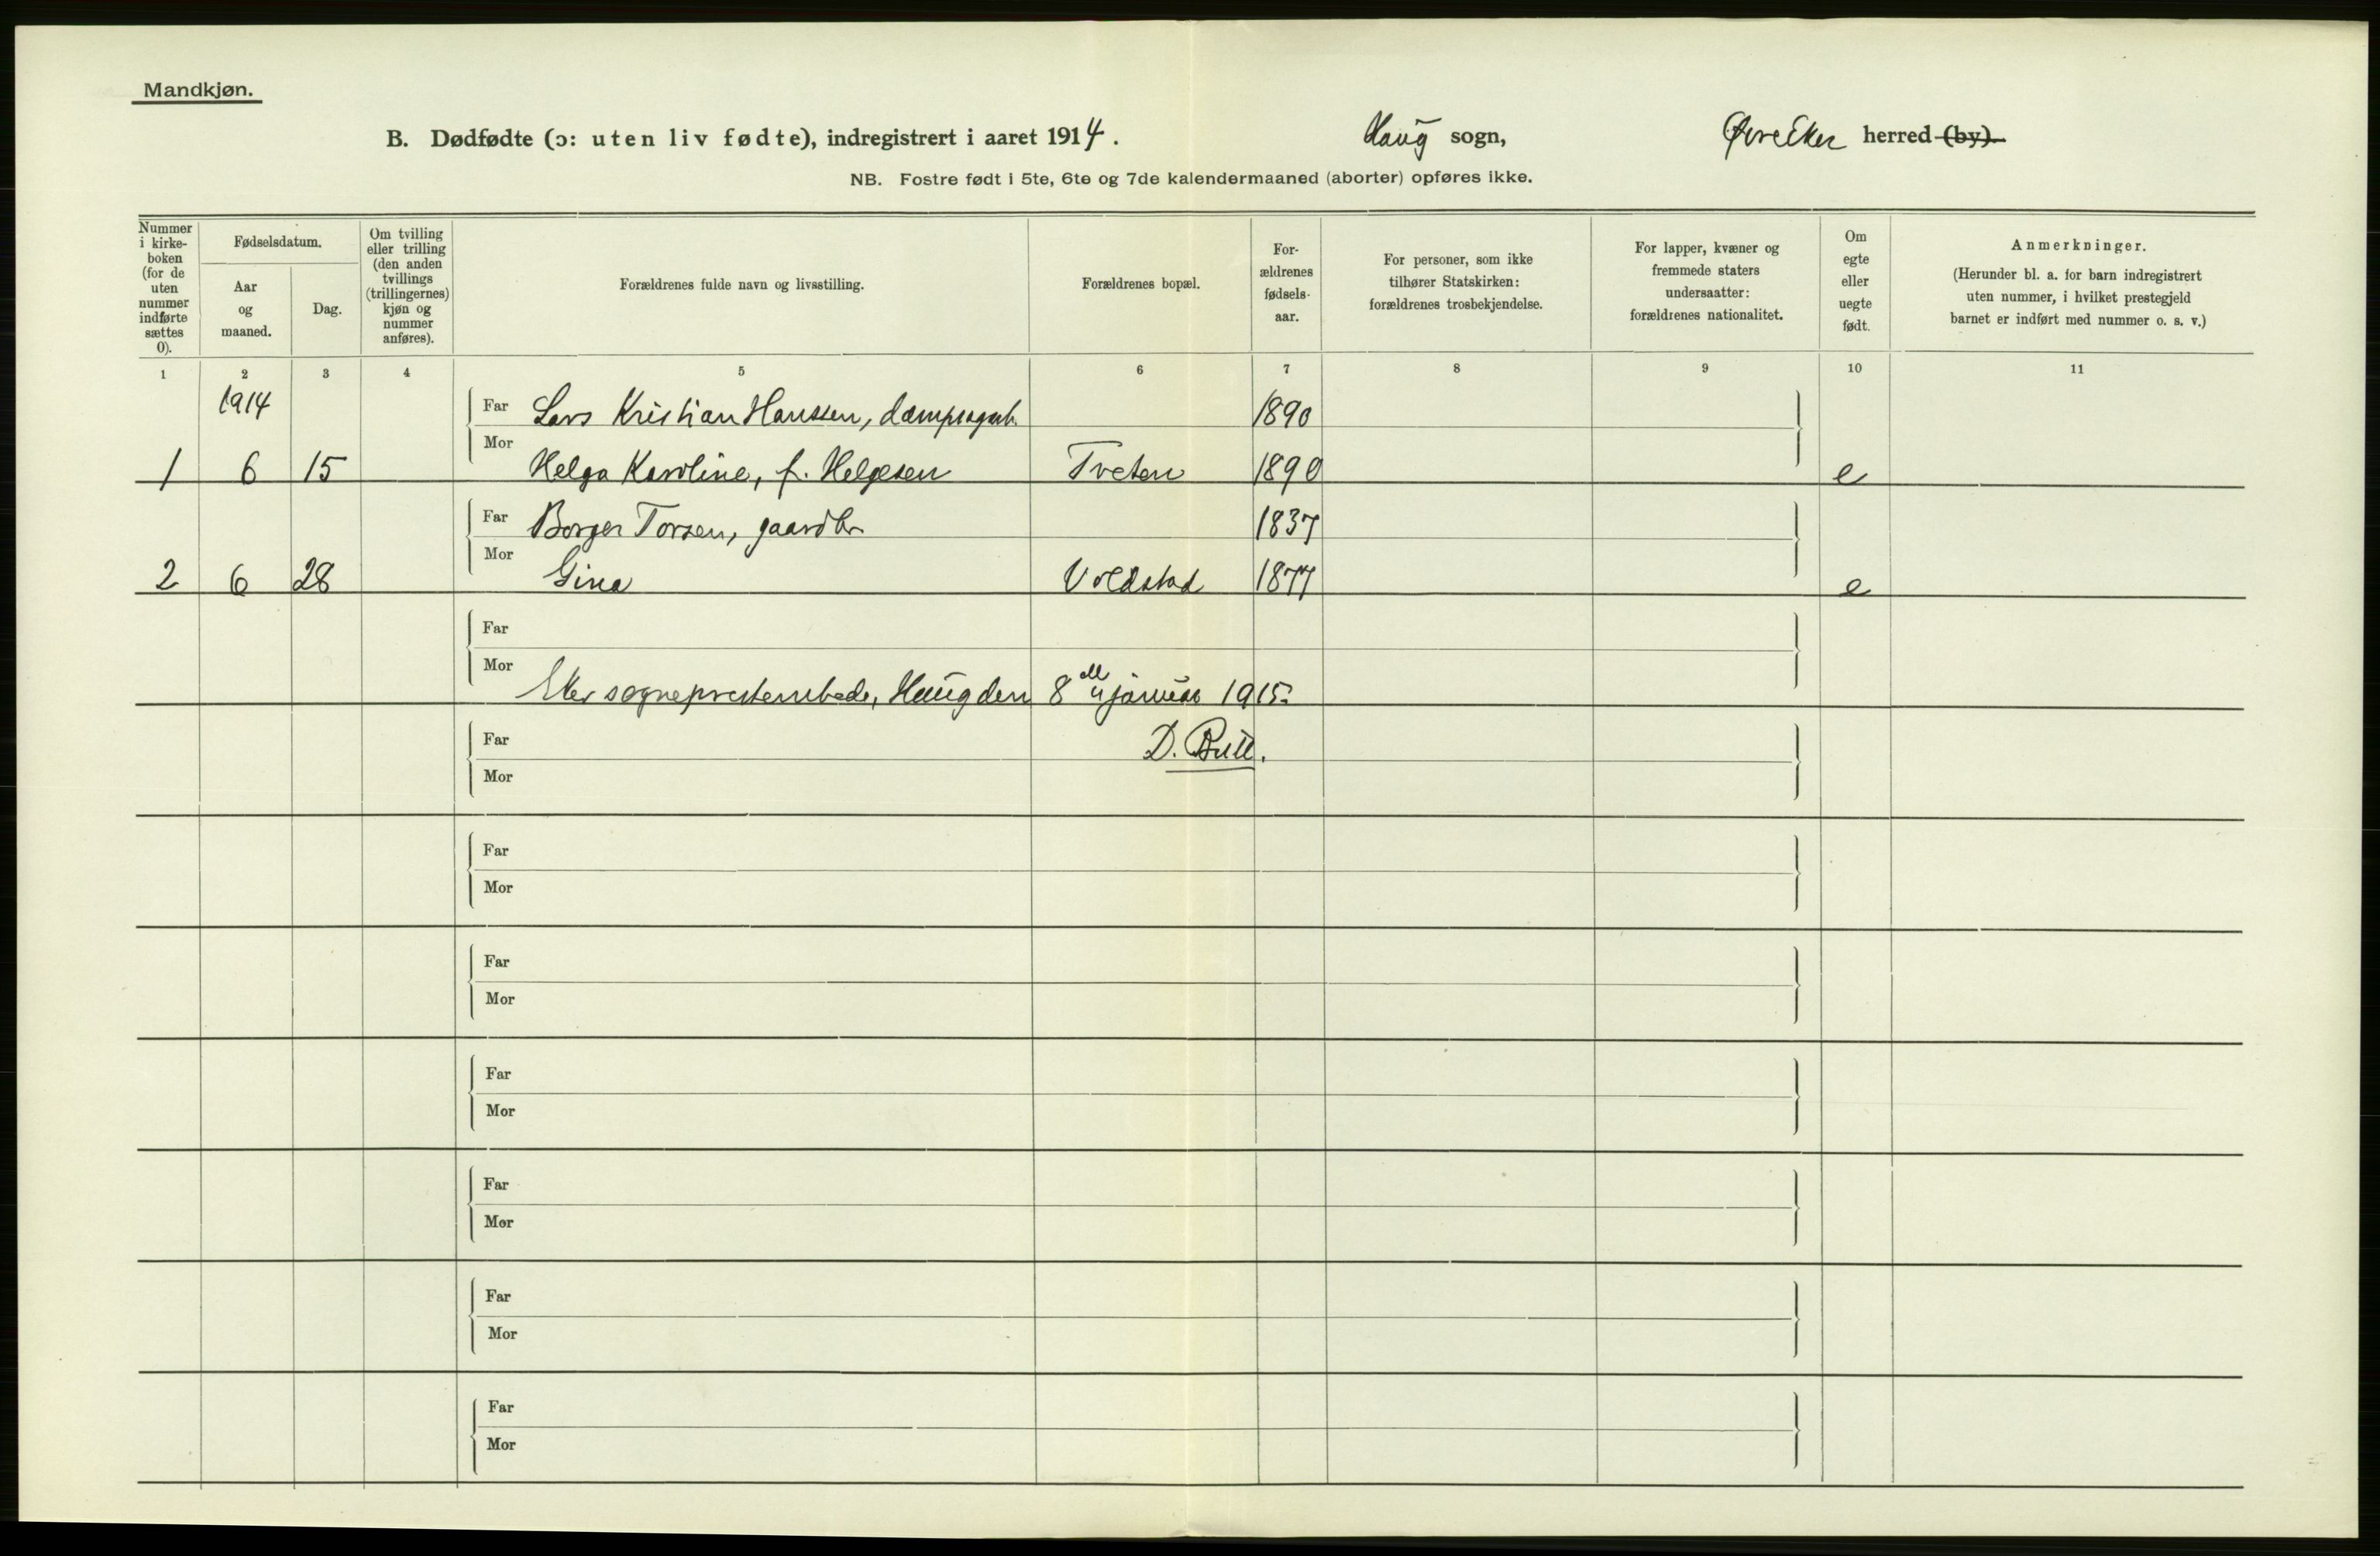 Mandkjøn.
B. Dødfødte (ɔ: uten liv fødte), indregistrert i aaret 1914. Haug sogn, Øvre Eker herred (by).
NB. Fostre født i 5te, 6te og 7de kalendermaaned (aborter) opføres ikke.
Nummer i kirke-boken (for de uten nummer indførte sættes 0).
Fødselsdatum.
Aar og maaned.
Dag.
Om tvilling eller trilling (den anden tvillings (trillingernes) kjøn og nummer anføres).
Forældrenes fulde navn og livsstilling.
Forældrenes bopæl.
For-ældrenes fødsels-aar.
For personer, som ikke tilhører Statskirken: forældrenes trosbekjendelse.
For lapper, kvæner og fremmede staters undersaatter: forældrenes nationalitet.
Om egte eller uegte født.
Anmerkninger.
(Herunder bl. a. for barn indregistrert uten nummer, i hvilket prestegjeld barnet er indført med nummer o. s. v.)
1 2 3 4 5 6 7 8 9 10 11
1914 Far Lars Kristian Hanssen, dampsagarb. 1890
1 6 15 Mor Helga Karoline, f. Helgesen Tveten 1890 e
Far Borger Torsen, gaardbr. 1837
2 6 28 Mor Gina Voldstad 1877 e
Far
Mor Eker sogneprestembede, Haug den 8 januar 1915.
Far D. Bull.
Mor
Far
Mor
Far
Mor
Far
Mor
Far
Mor
Far
Mor
Far
Mor